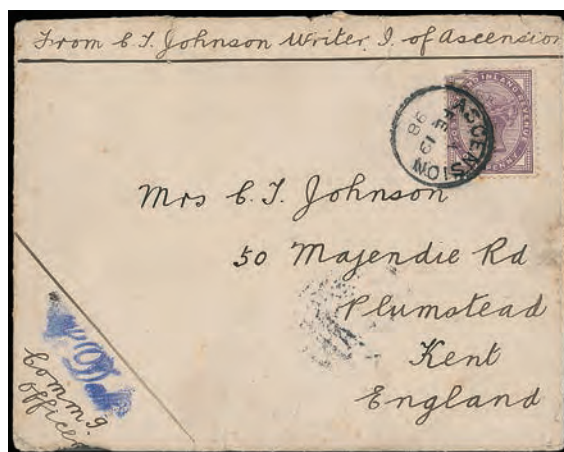 From C.T. Johnson Writer I. of Ascension
ASCENSION
19
98
INLAND REVENUE
Mrs C.T. Johnson
50 Majendie Rd
Plumstead
Kent
England
Commg.
Officer